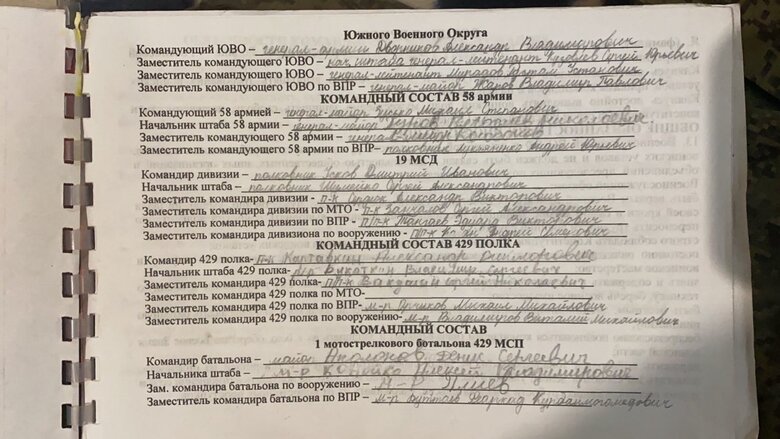 Южного Военного Округа
Командующий ЮВО – генерал-армии Дворников Александр Владимирович
Заместитель командующего ЮВО – нач. штаба генерал-лейтенант Кузовлев Сергей Юрьевич
Заместитель командующего ЮВО – генерал-лейтенант Мурадов Рустам Усманович
Заместитель командующего ЮВО по ВПР – генерал-майор Жаров Владимир Павлович
КОМАНДНЫЙ СОСТАВ 58 армии
Командующий 58 армией – генерал-майор Зусько Михаил Степанович
Начальник штаба 58 армии – генерал-майор Николаевич
Заместитель командующего 58 армии –
Заместитель командующего 58 армии по ВПР – полковник Лукьяненко Андрей Юрьевич
19 МСД
Командир дивизии – полковник Усков Дмитрий Иванович
Начальник штаба – полковник Сергей Александрович
Заместитель командира дивизии – п-к Александр Викторович
Заместитель командира дивизии по МТО – п-к Сергей Александрович
Заместитель командира дивизии по ВПР – п/п-к Эдуард Викторович
Заместитель командира дивизиона по вооружению – п/п-к
КОМАНДНЫЙ СОСТАВ 429 ПОЛКА
Командир 429 полка- п-к Александр
Начальник штаба 429 полка- м-р Букаткин Владимир Сергеевич
Заместитель командира 429 полка – п/п-к Вакушин Сергей Николаевич
Заместитель командира 429 полка по МТО-
Заместитель командира 429 полка по ВПР – м-р Михаил Михайлович
Заместитель командира 429 полка по вооружению- м-р Владимиров Виталий Михайлович
КОМАНДНЫЙ СОСТАВ
1 мотострелкового батальона 429 МСП
Командир батальона – майор Денис Сергеевич
Начальника штаба – м-р Алексей Владимирович
Зам. командира батальона по вооружению – м-р
Заместитель командира батальона по ВПР – м-р Курбанмагомедович